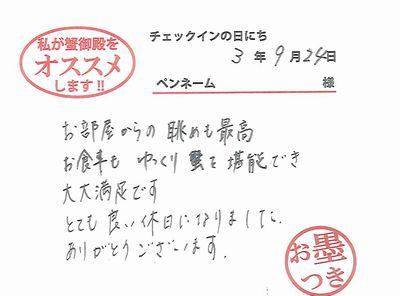 私が蟹御殿を
オススメ
します!!
チェックインの日にち
3年9月24日
ペンネーム 様
お部屋からの眺めも最高
お食事も ゆっくり蟹を堪能でき
大大満足です
とても良い休日になりました。
ありがとうございます。
お墨
つき